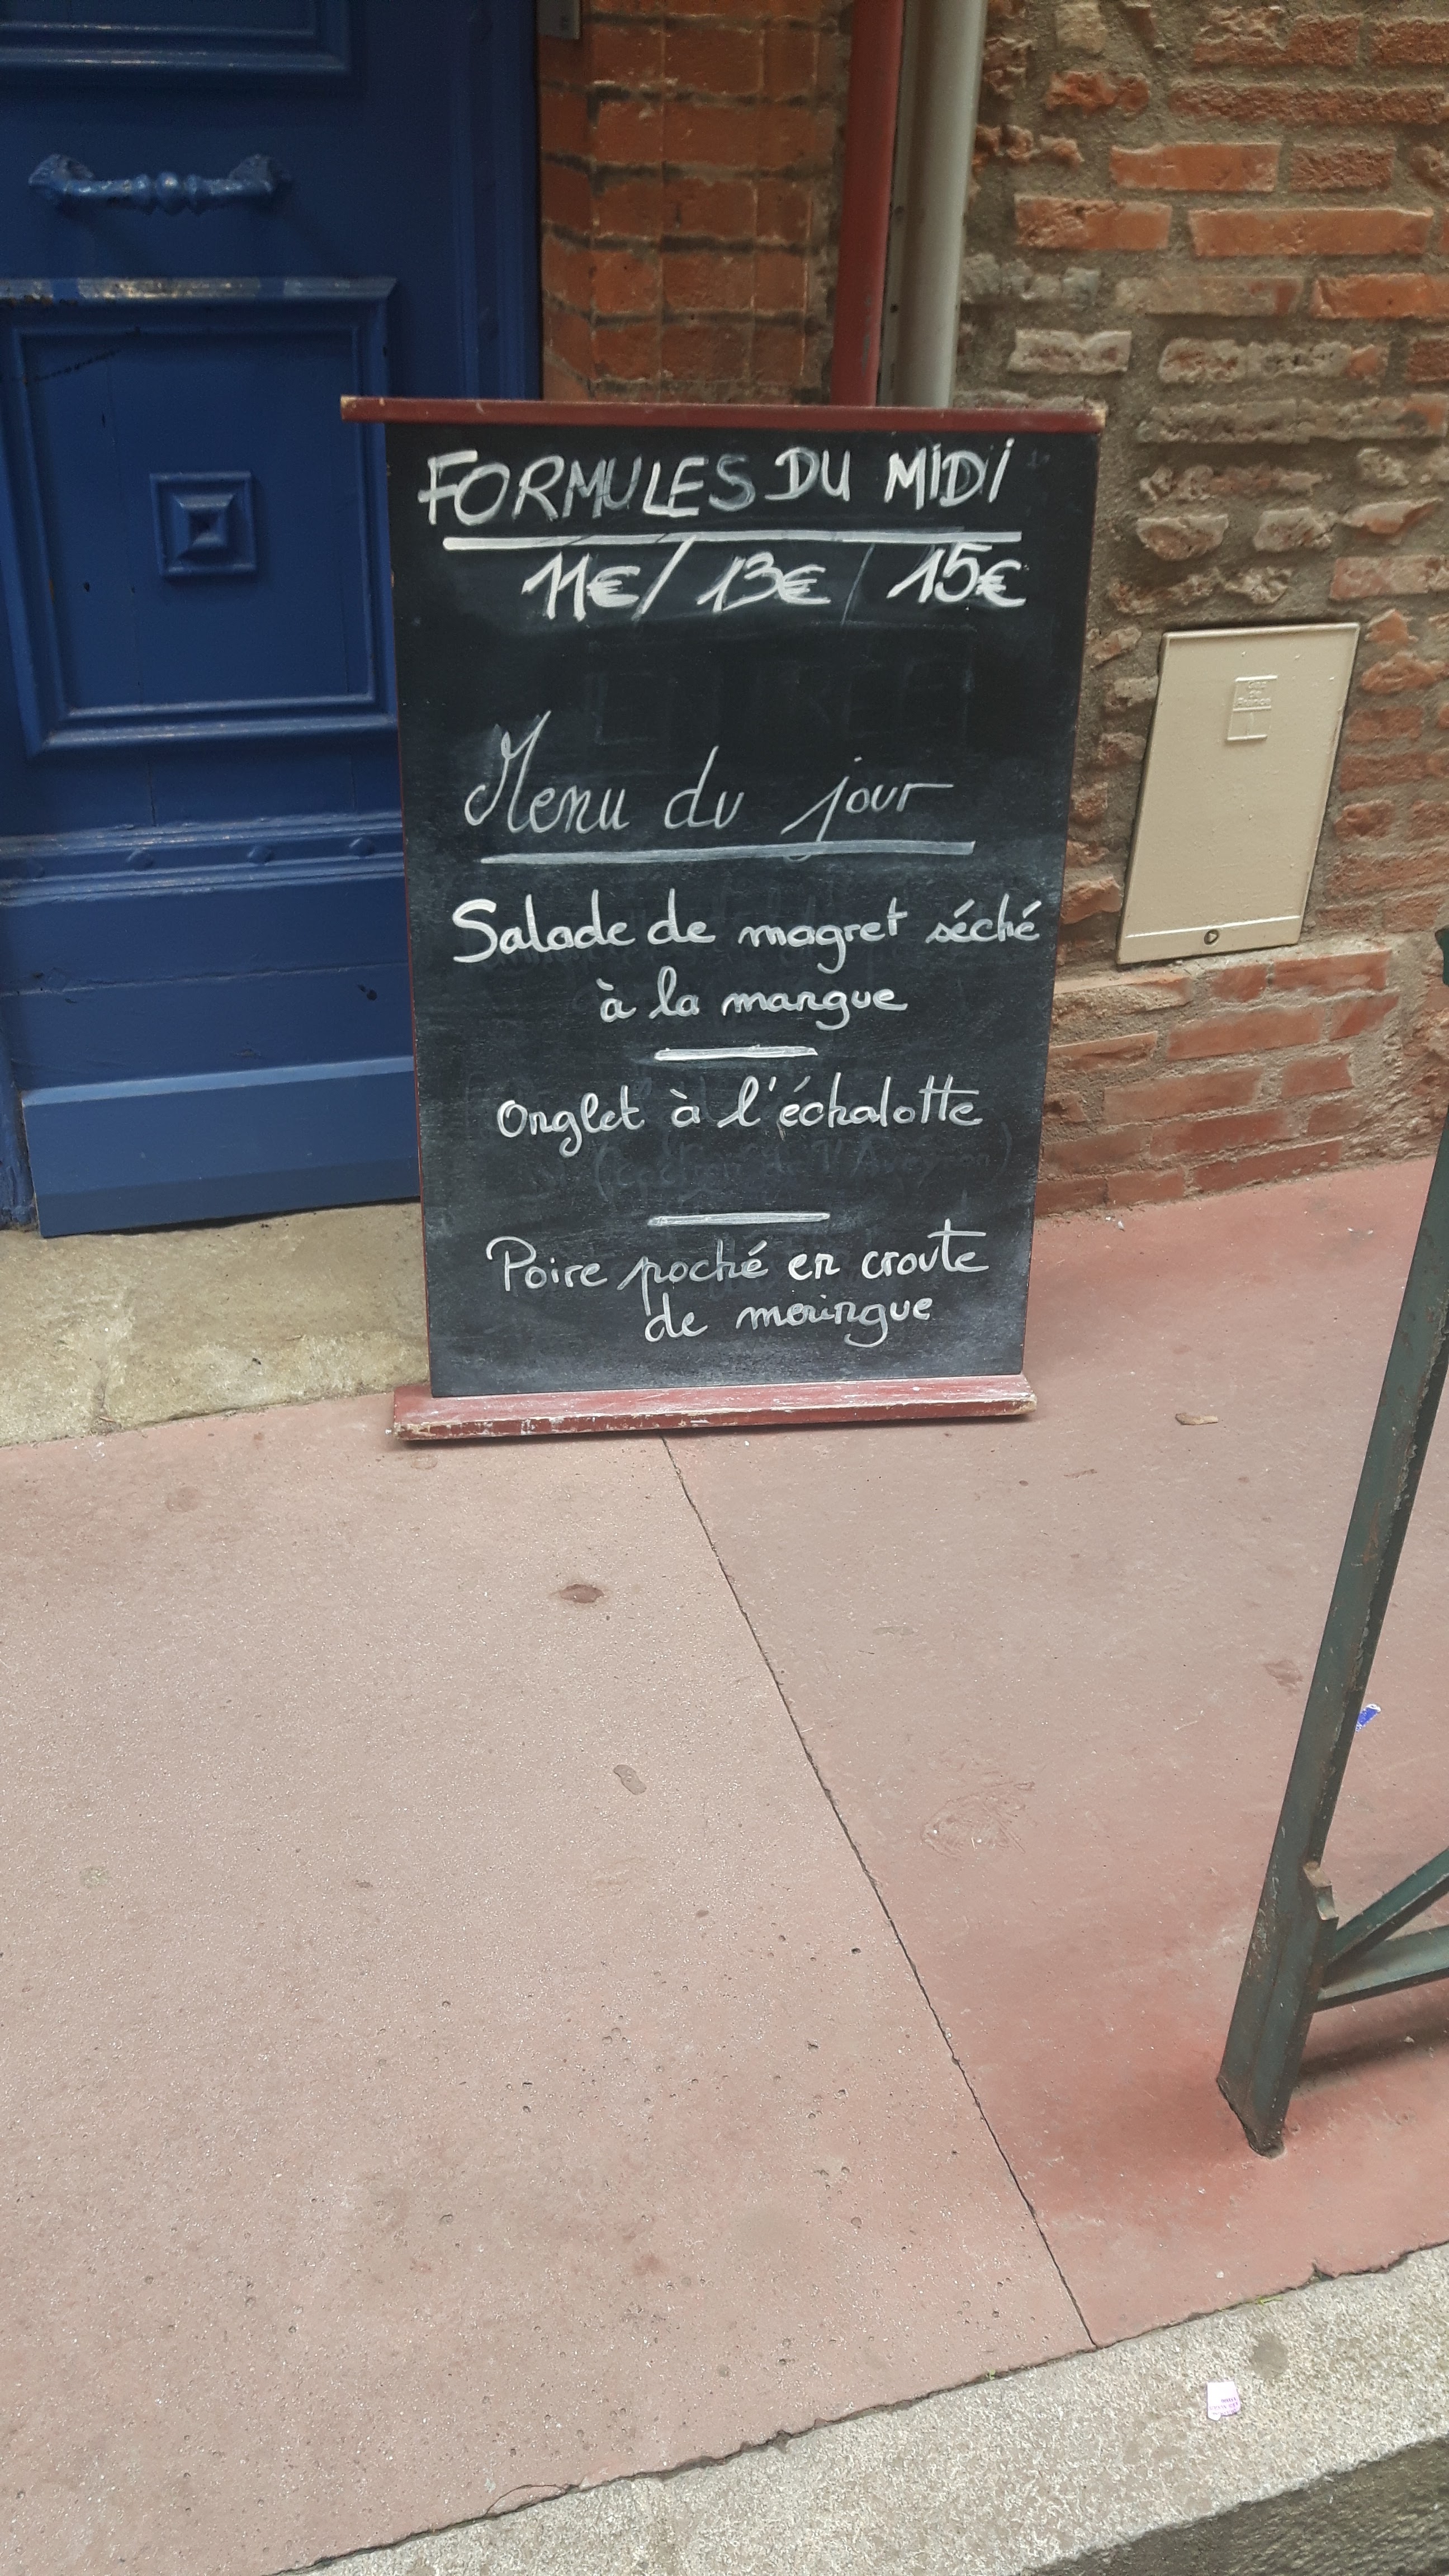 FORMULES DU MIDI
11€/ 13€ / 15€
Menu du jour
Salade de magret séché
à la mangue
Onglet à l'échalotte
Poire poché en croute
de meringue